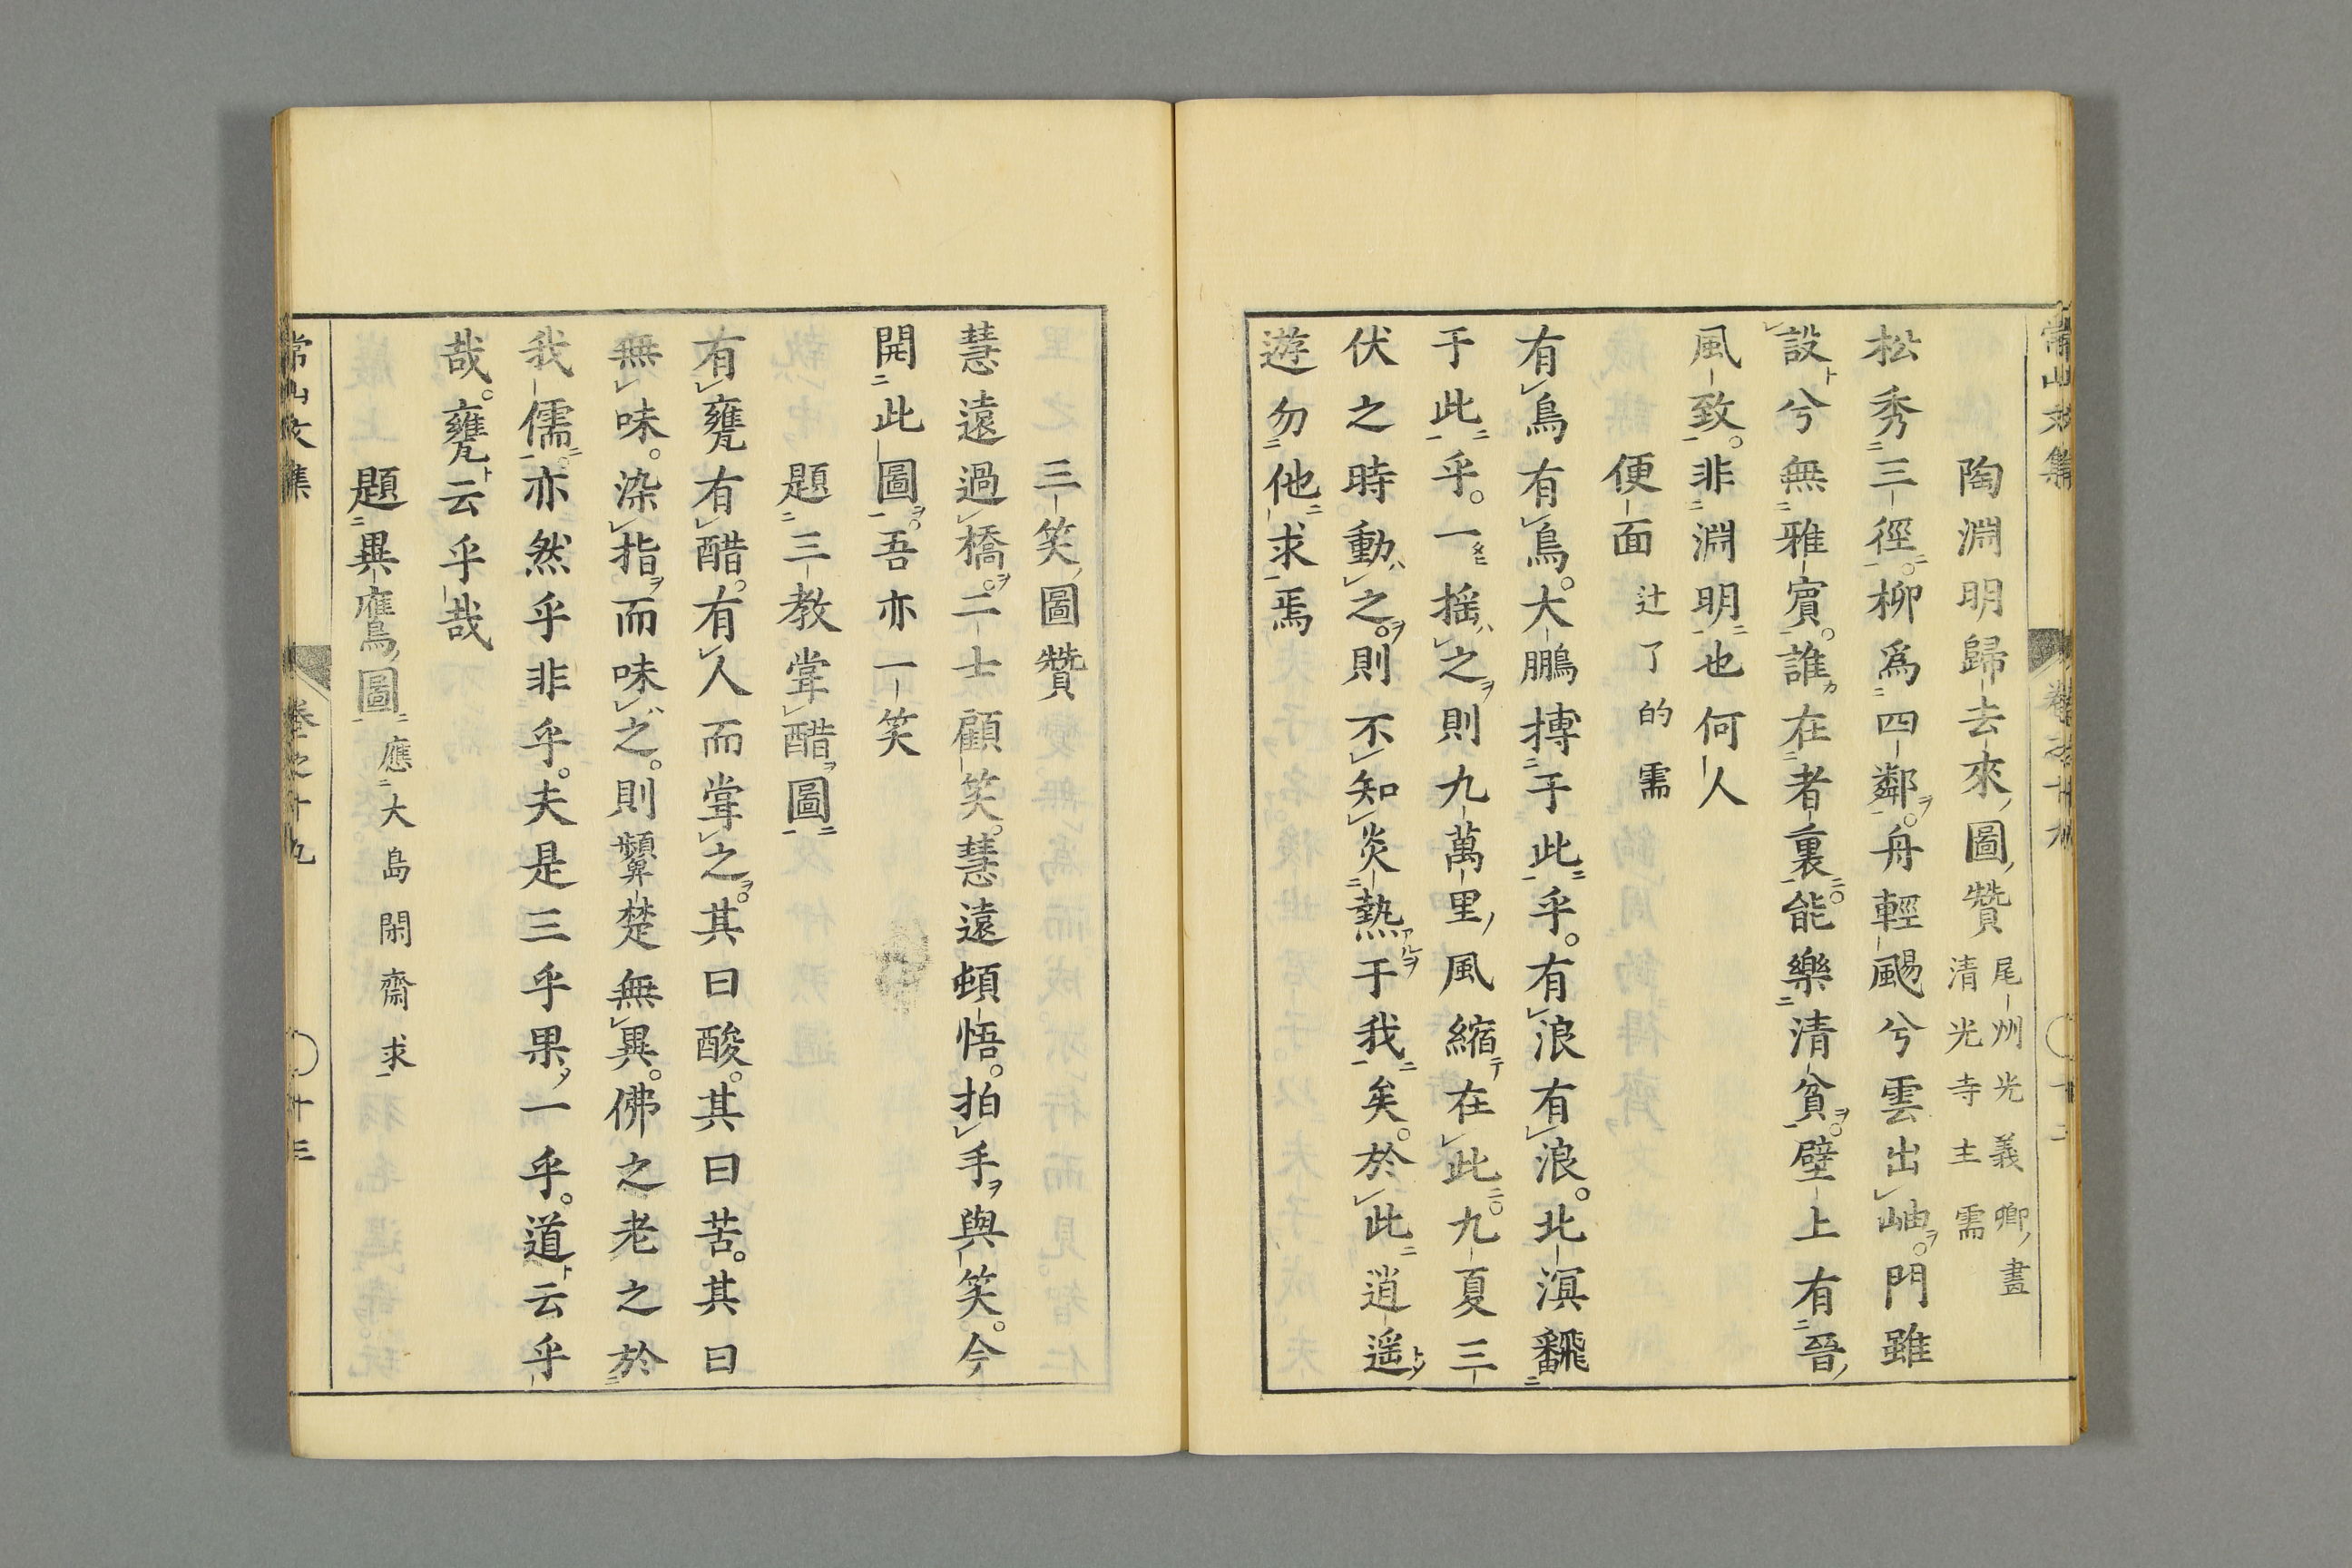 常山文集 卷之十九 十二
陶淵明歸去來圖贊 尾州光義卿畫 清光寺主需
松秀三徑。柳爲四鄰。舟輕颺兮雲出岫。門雖
設兮無雅賓。誰在者裏。能樂清貧。壁上有晉
風致。非淵明也何人
便面 辻了的需
有鳥有鳥。大鵬摶于此乎。有浪有浪。北溟飜
于此乎。一搖之則九萬里風縮在此。九夏三
伏之時動之。則不知炎熱于我矣。於此逍遥
遊勿他求焉
三笑圖贊
慧遠過橋。二士顧笑。慧遠頓悟。拍手與笑。今
開此圖。吾亦一笑
題三教甞醋圖
有甕有醋。有人而甞之。其曰酸。其曰苦。其曰
無味。染指而味之。則顰楚無異。佛之老之於
我儒。亦然乎非乎。夫是三乎果一乎。道云乎
哉。甕云乎哉
題異鷹圖 應大島閑齋求
常山文集 卷之十九 十三